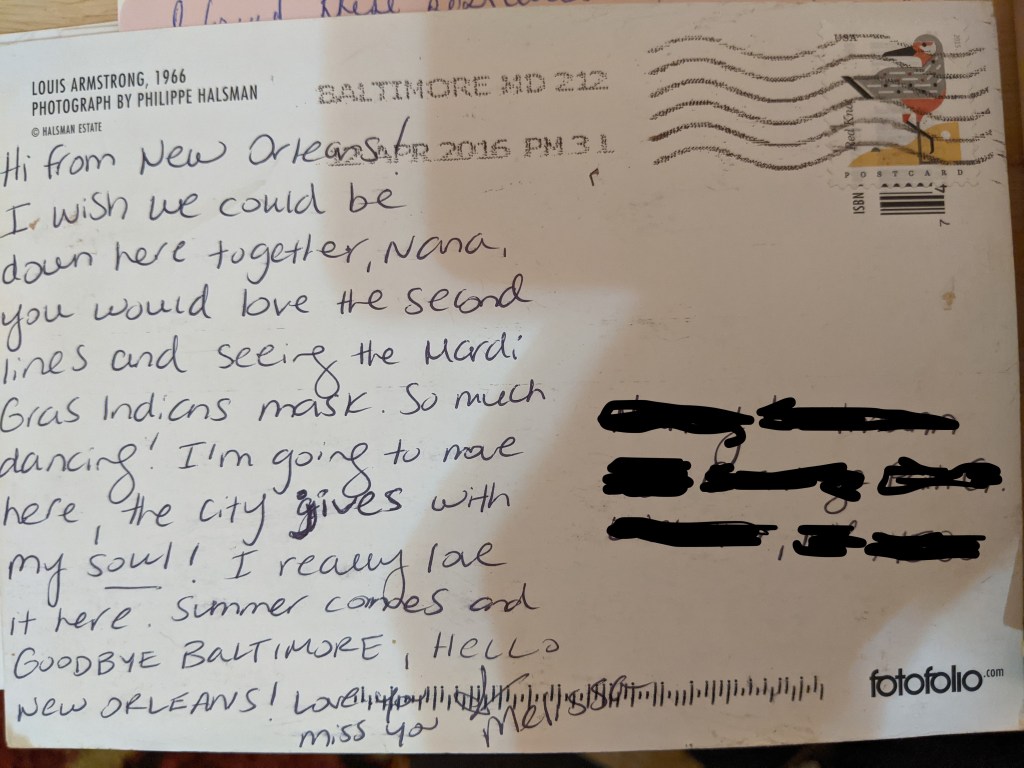 I found these
LOUIS ARMSTRONG, 1966
PHOTOGRAPH BY PHILIPPE HALSMAN
© HALSMAN ESTATE
BALTIMORE MD 212
APR 2016 PM 3 L
USA
Red Knot
POSTCARD
ISBN
7
Hi from New Orleans!
I wish we could be
down here together, Nana,
you would love the second
lines and seeing the Mardi
Gras Indians mask. So much
dancing! I'm going to move
here, the city gives with
my soul! I really love
it here. Summer comes and
GOODBYE BALTIMORE, HELLO
NEW ORLEANS! LOVE you
miss ya Melissa
fotofolio.com